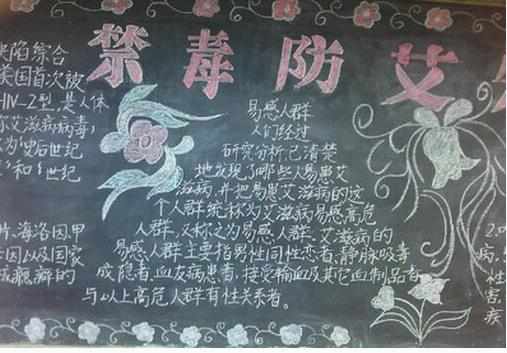 禁毒防艾
陷综合
美国首次被
型,是人体
艾滋病病毒;
为"超世纪
"和"世纪
片、海洛因、甲
因以及国家
成瘾癖的
易感人群
人们经过
研究分析,已清楚
地发现了哪些人易患艾
滋病,并把易患艾滋病的这
个人群统称为艾滋病易感高危
人群,又称之为易感人群。艾滋病的
易感人群主要指男性同性恋者、静脉吸毒
成隐者、血友病患者,接受输血及其它血制品者、
与以上高危人群有性关系者。
2.
病
性
害
疾